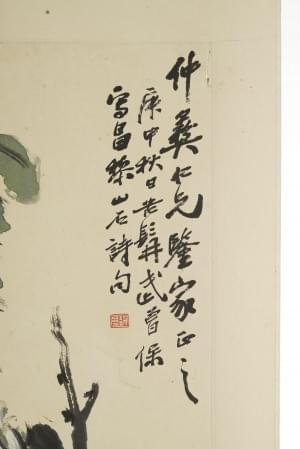 仲彝仁兄鑒家正之
庚申秋日苦鬝武曾保
寫昌黎山石詩句